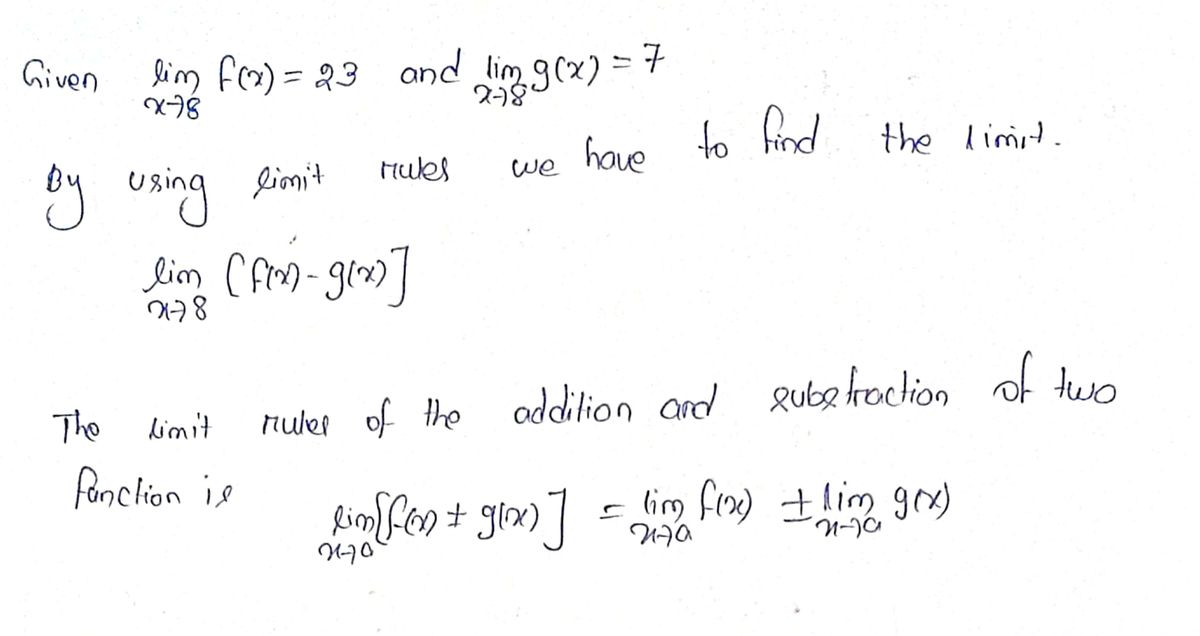 Given lim x→8 f(x) = 23 and lim x→8 g(x) = 7
By using limit rules we have to find the limit.
lim x→8 [f(x) - g(x)]
The limit rules of the addition and substraction of two
function is
lim x→a [f(x) ± g(x)] = lim x→a f(x) ± lim x→a g(x)